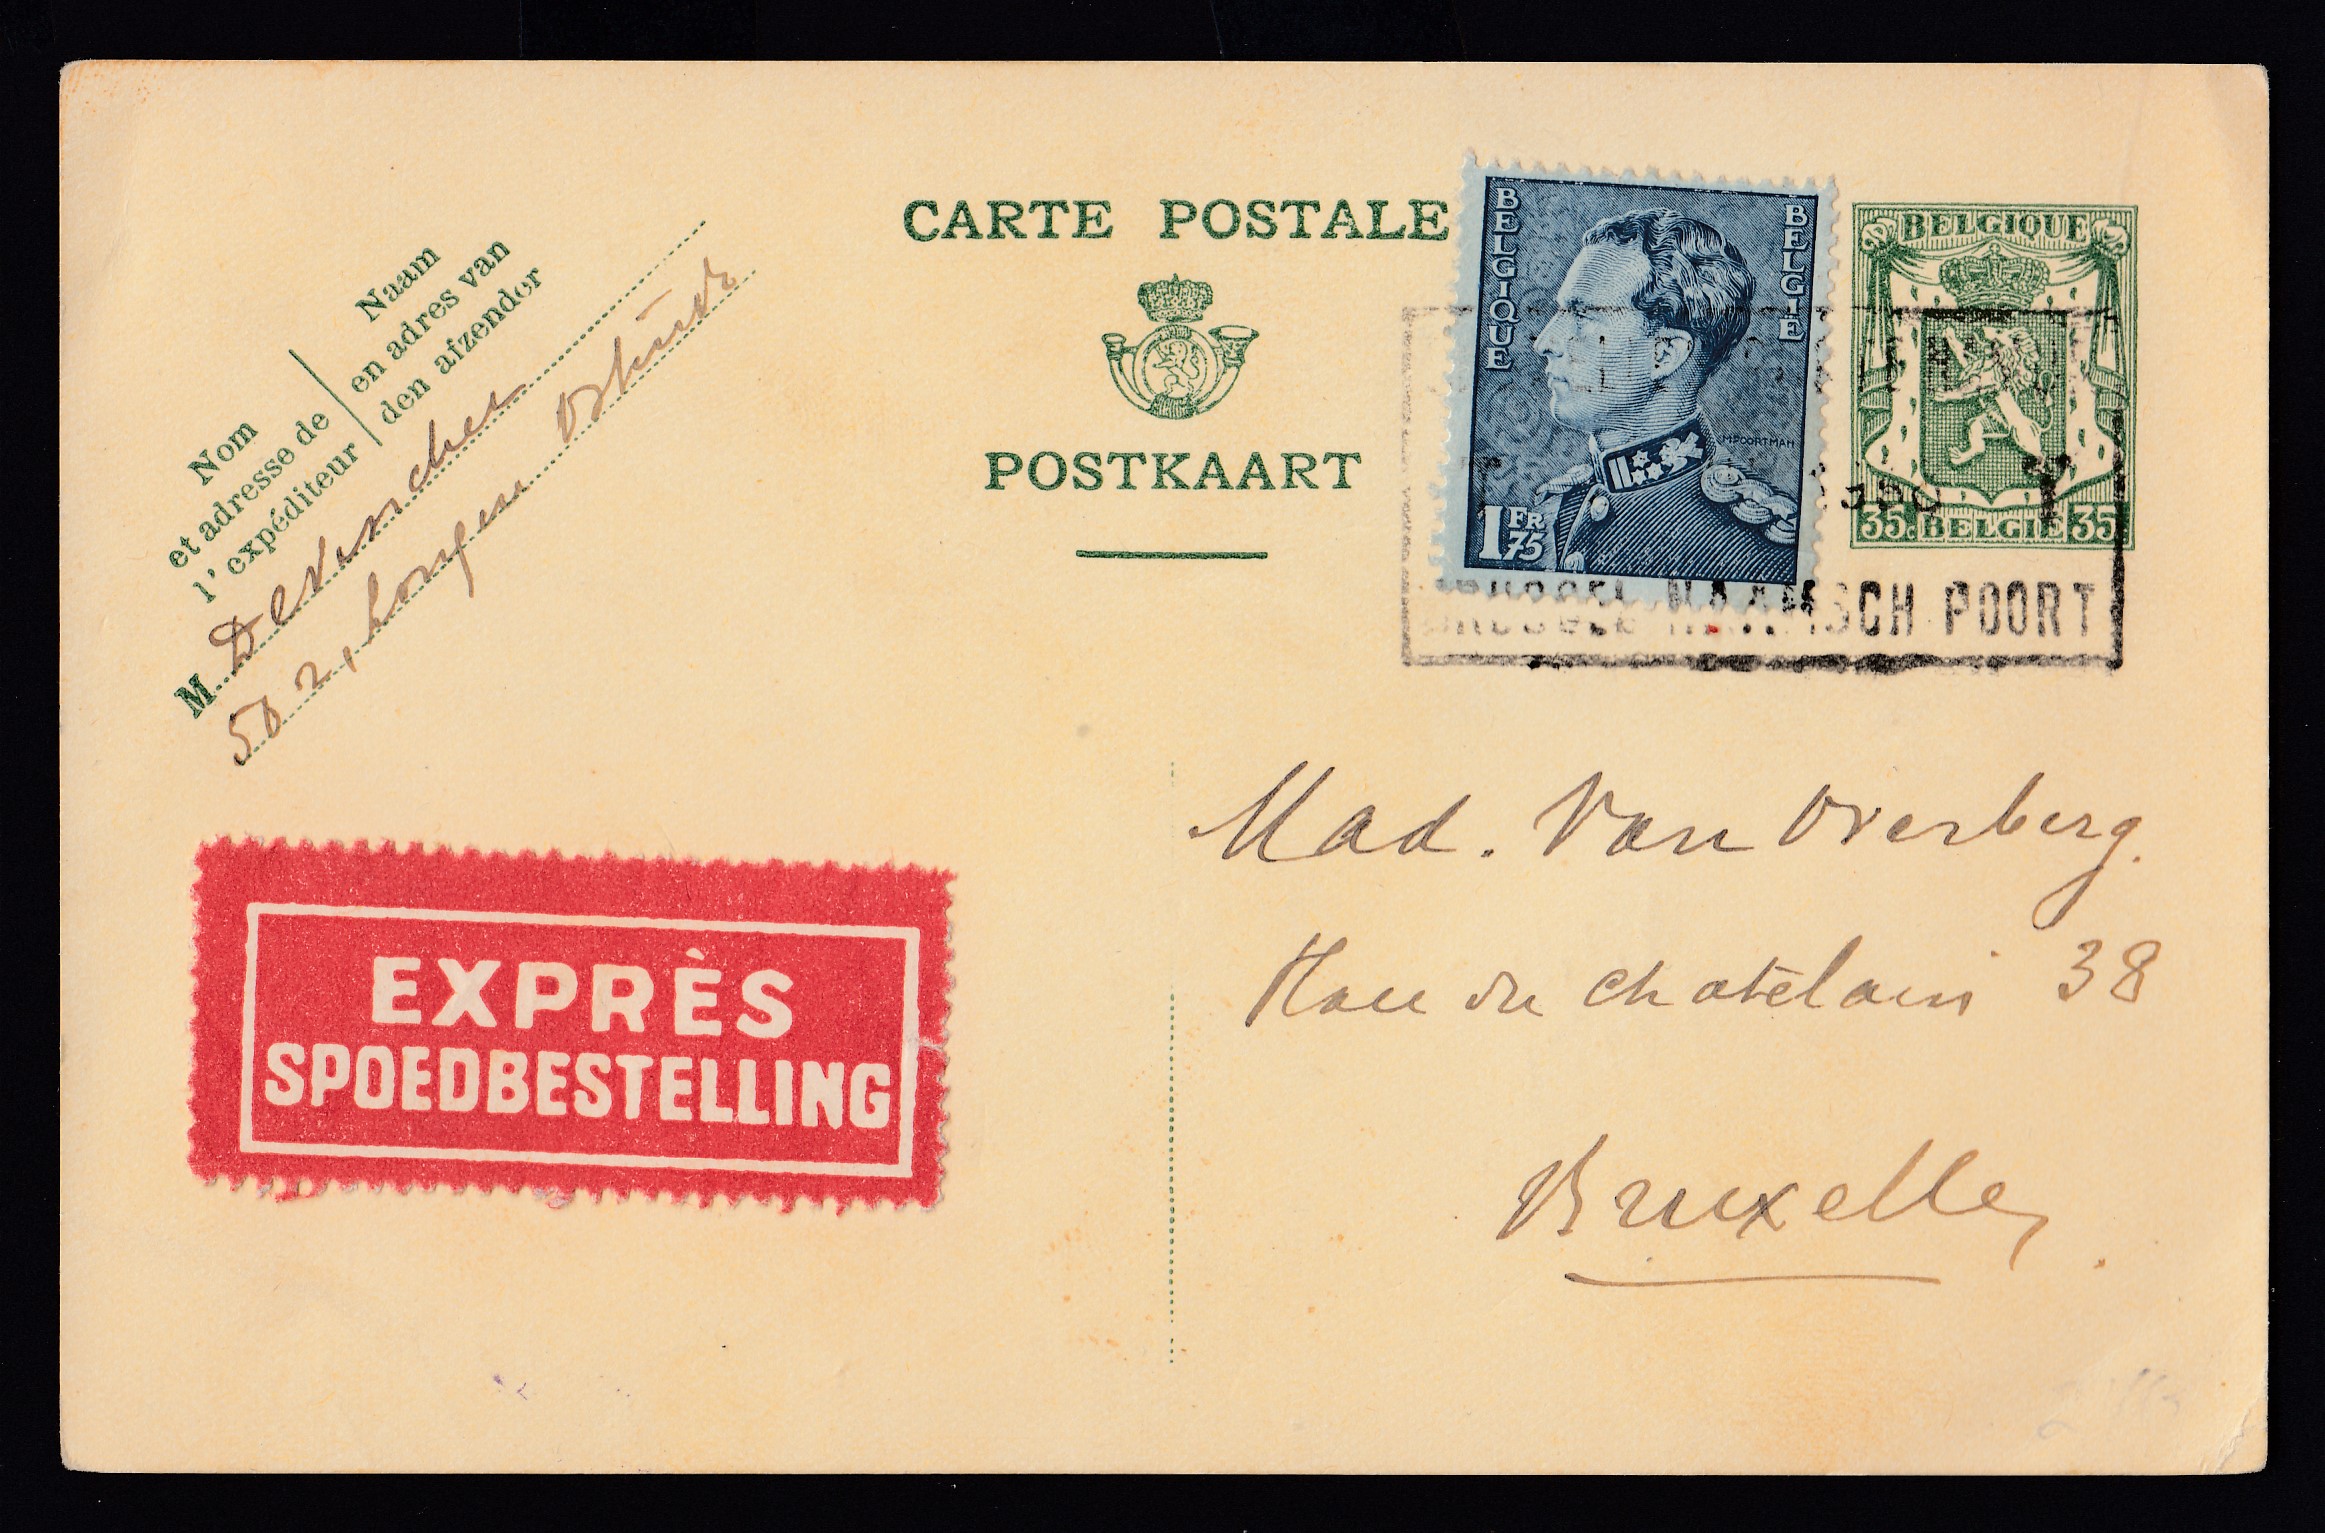 CARTE POSTALE
POSTKAART
Nom
et adresse de
l'expéditeur
Naam
en adres van
den afzender
M.
50 2,
BELGIQUE
BELGIË
M.POORTMAN
1 FR 75
BELGIQUE
35. BELGIË 35
BRUSSEL NAAMSCH POORT
Mad. Van Overberg.
Rue du Chatelain 38
Bruxelles.
EXPRÈS
SPOEDBESTELLING